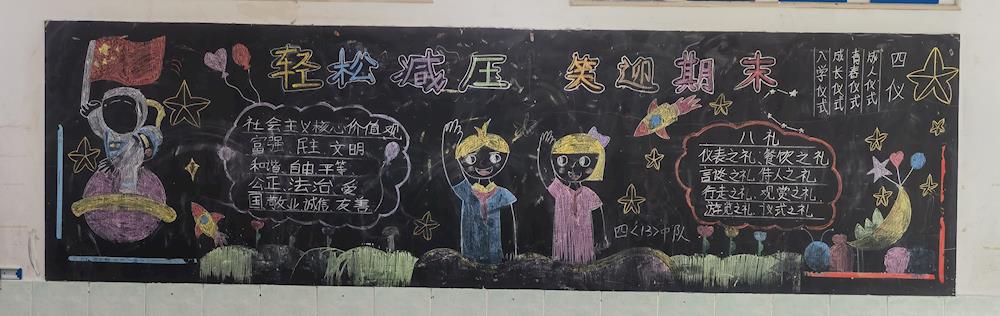 轻松减压 笑迎期末
社会主义核心价值观
富强、民主、文明
和谐、自由、平等
公正、法治、爱
国敬业诚信、友善
八礼
仪表之礼、餐饮之礼
言谈之礼、待人之礼
行走之礼、观赏之礼
游览之礼、仪式之礼
四仪
成人仪式
青春仪式
成长仪式
入学仪式
四(13)中队